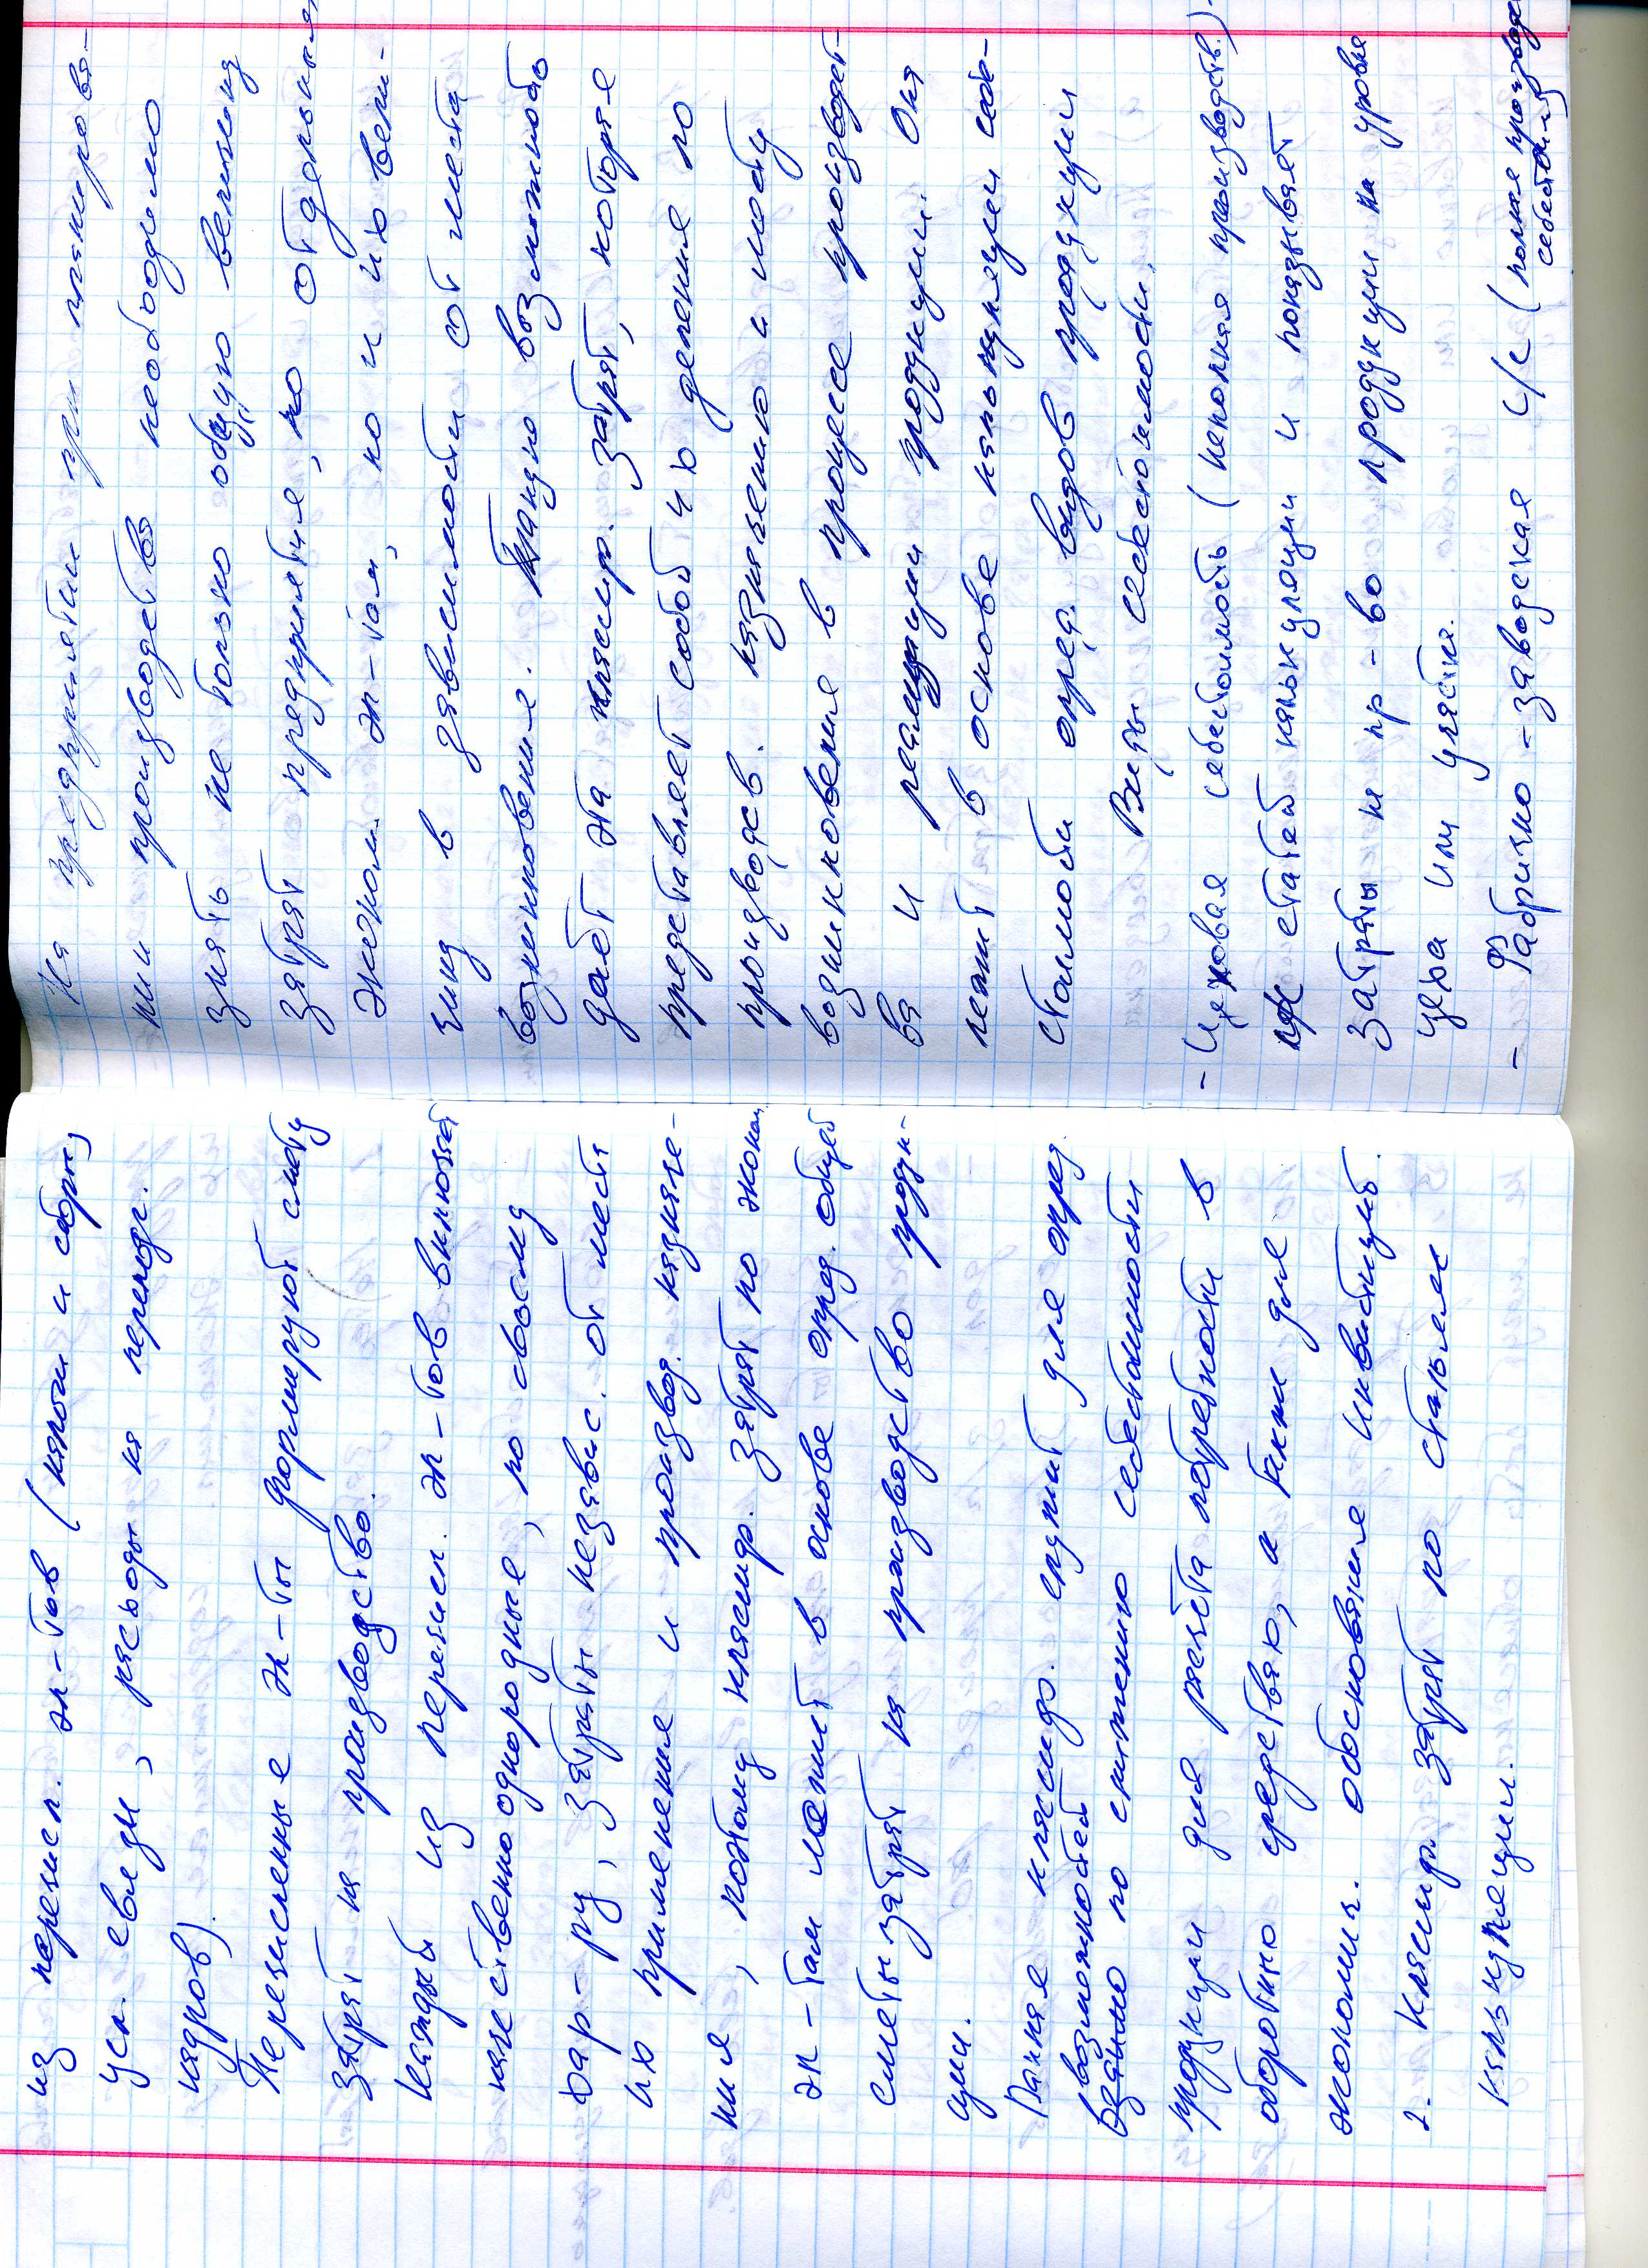 из перечисл. эл-тов (налоги и сборы,
усл. связи, расходы на перепод.
кадров).
Перечисленные эл-ты формируют смету
затрат на производство.
Каждый из перечисл. эл-тов включает
качественно однородные, по своему
хар-ру, затраты независ. от места
их применения и производ. назначе-
ния, поэтому классифр. затрат по эконом.
эл-там лежит в основе опред. общей
сметы затрат на производство продук-
ции.
Данная классифр. служит для опред.
возможностей
задано по снижению себестоимости
продукции для расчёта потребности в
оборотных средствах, а также для
экономич. обоснования инвестиций.
2. Классифр. затрат по статьям
калькуляции.
На предприятии при планирова-
нии производства необходимо
знать не только общую величину
затрат предприятия, по отдельным
эконом. эл-там, но и их вели-
чину в зависимости от места
возникновения. Такую возможность
даёт эта классифр. затрат, которая
представляет собой их деления по
производсв. назначению и месту
возникновения в процессе производст-
ва и реализации продукции. Она
лежит в основе калькуляции себе-
стоимости опред. видов продукции
Виды себестоимости.
- Цеховая себестоимость (неполная производств.) -
статей калькуляции и показывает
затраты на пр-во продукции на уровне
цеха или участка.
- Фабрично-заводская с/с (полная производ
себестоим)